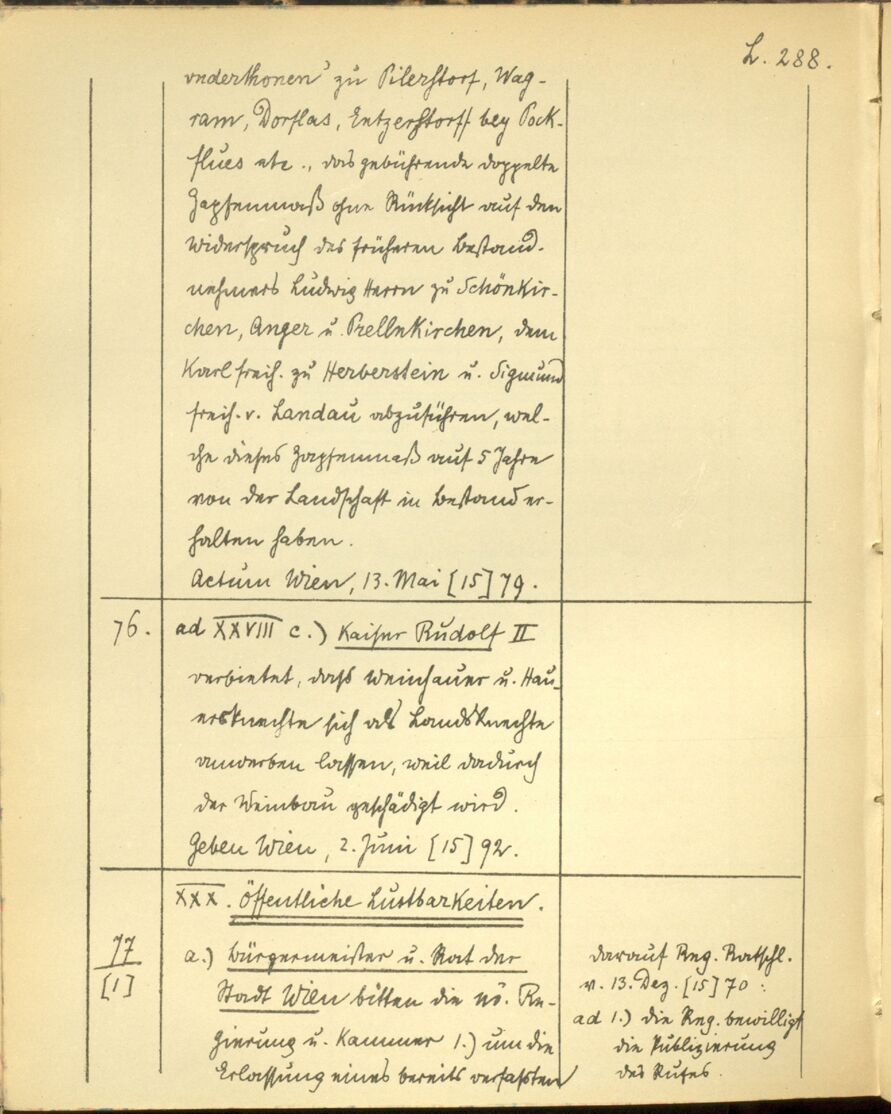 L. 288.
vnderthonen' zu Pilerstorf, Wag-
ram, Dorflas, Entzerstorff bey Pock-
flues etc., das gebührende doppelte
Zapfenmaß ohne Rücksicht auf den
Widerspruch des früheren Bestand-
nehmers Ludwig Herrn zu Schönkir-
chen, Anger u. Prellnkirchen, dem
Karl Freih. zu Herberstein u. Sigmund
Freih. v. Landau abzuführen, wel-
che dieses Zapfenmaß auf 5 Jahre
von der Landschaft in Bestand er-
halten haben.
Actum Wien, 13. Mai [15]79.
76. ad XXVIII c.) Kaiser Rudolf II
verbietet, daß Weinhauer u. Hau-
ersknechte sich als Landsknechte
anwerben lassen, weil dadurch
der Weinbau geschädigt wird.
Geben Wien, 2. Juni [15]92.
XXX. Öffentliche Lustbarkeiten.
77
[1]
a.) Bürgermeister u. Rat der
Stadt Wien bitten die nö. Re-
gierung u. Kammer 1.) um die
Erlassung eines bereits verfaßten
darauf Reg. Ratschl.
v. 13. Dez. [15]70:
ad 1.) die Reg. bewilligt
die Publizierung
des Rufes.